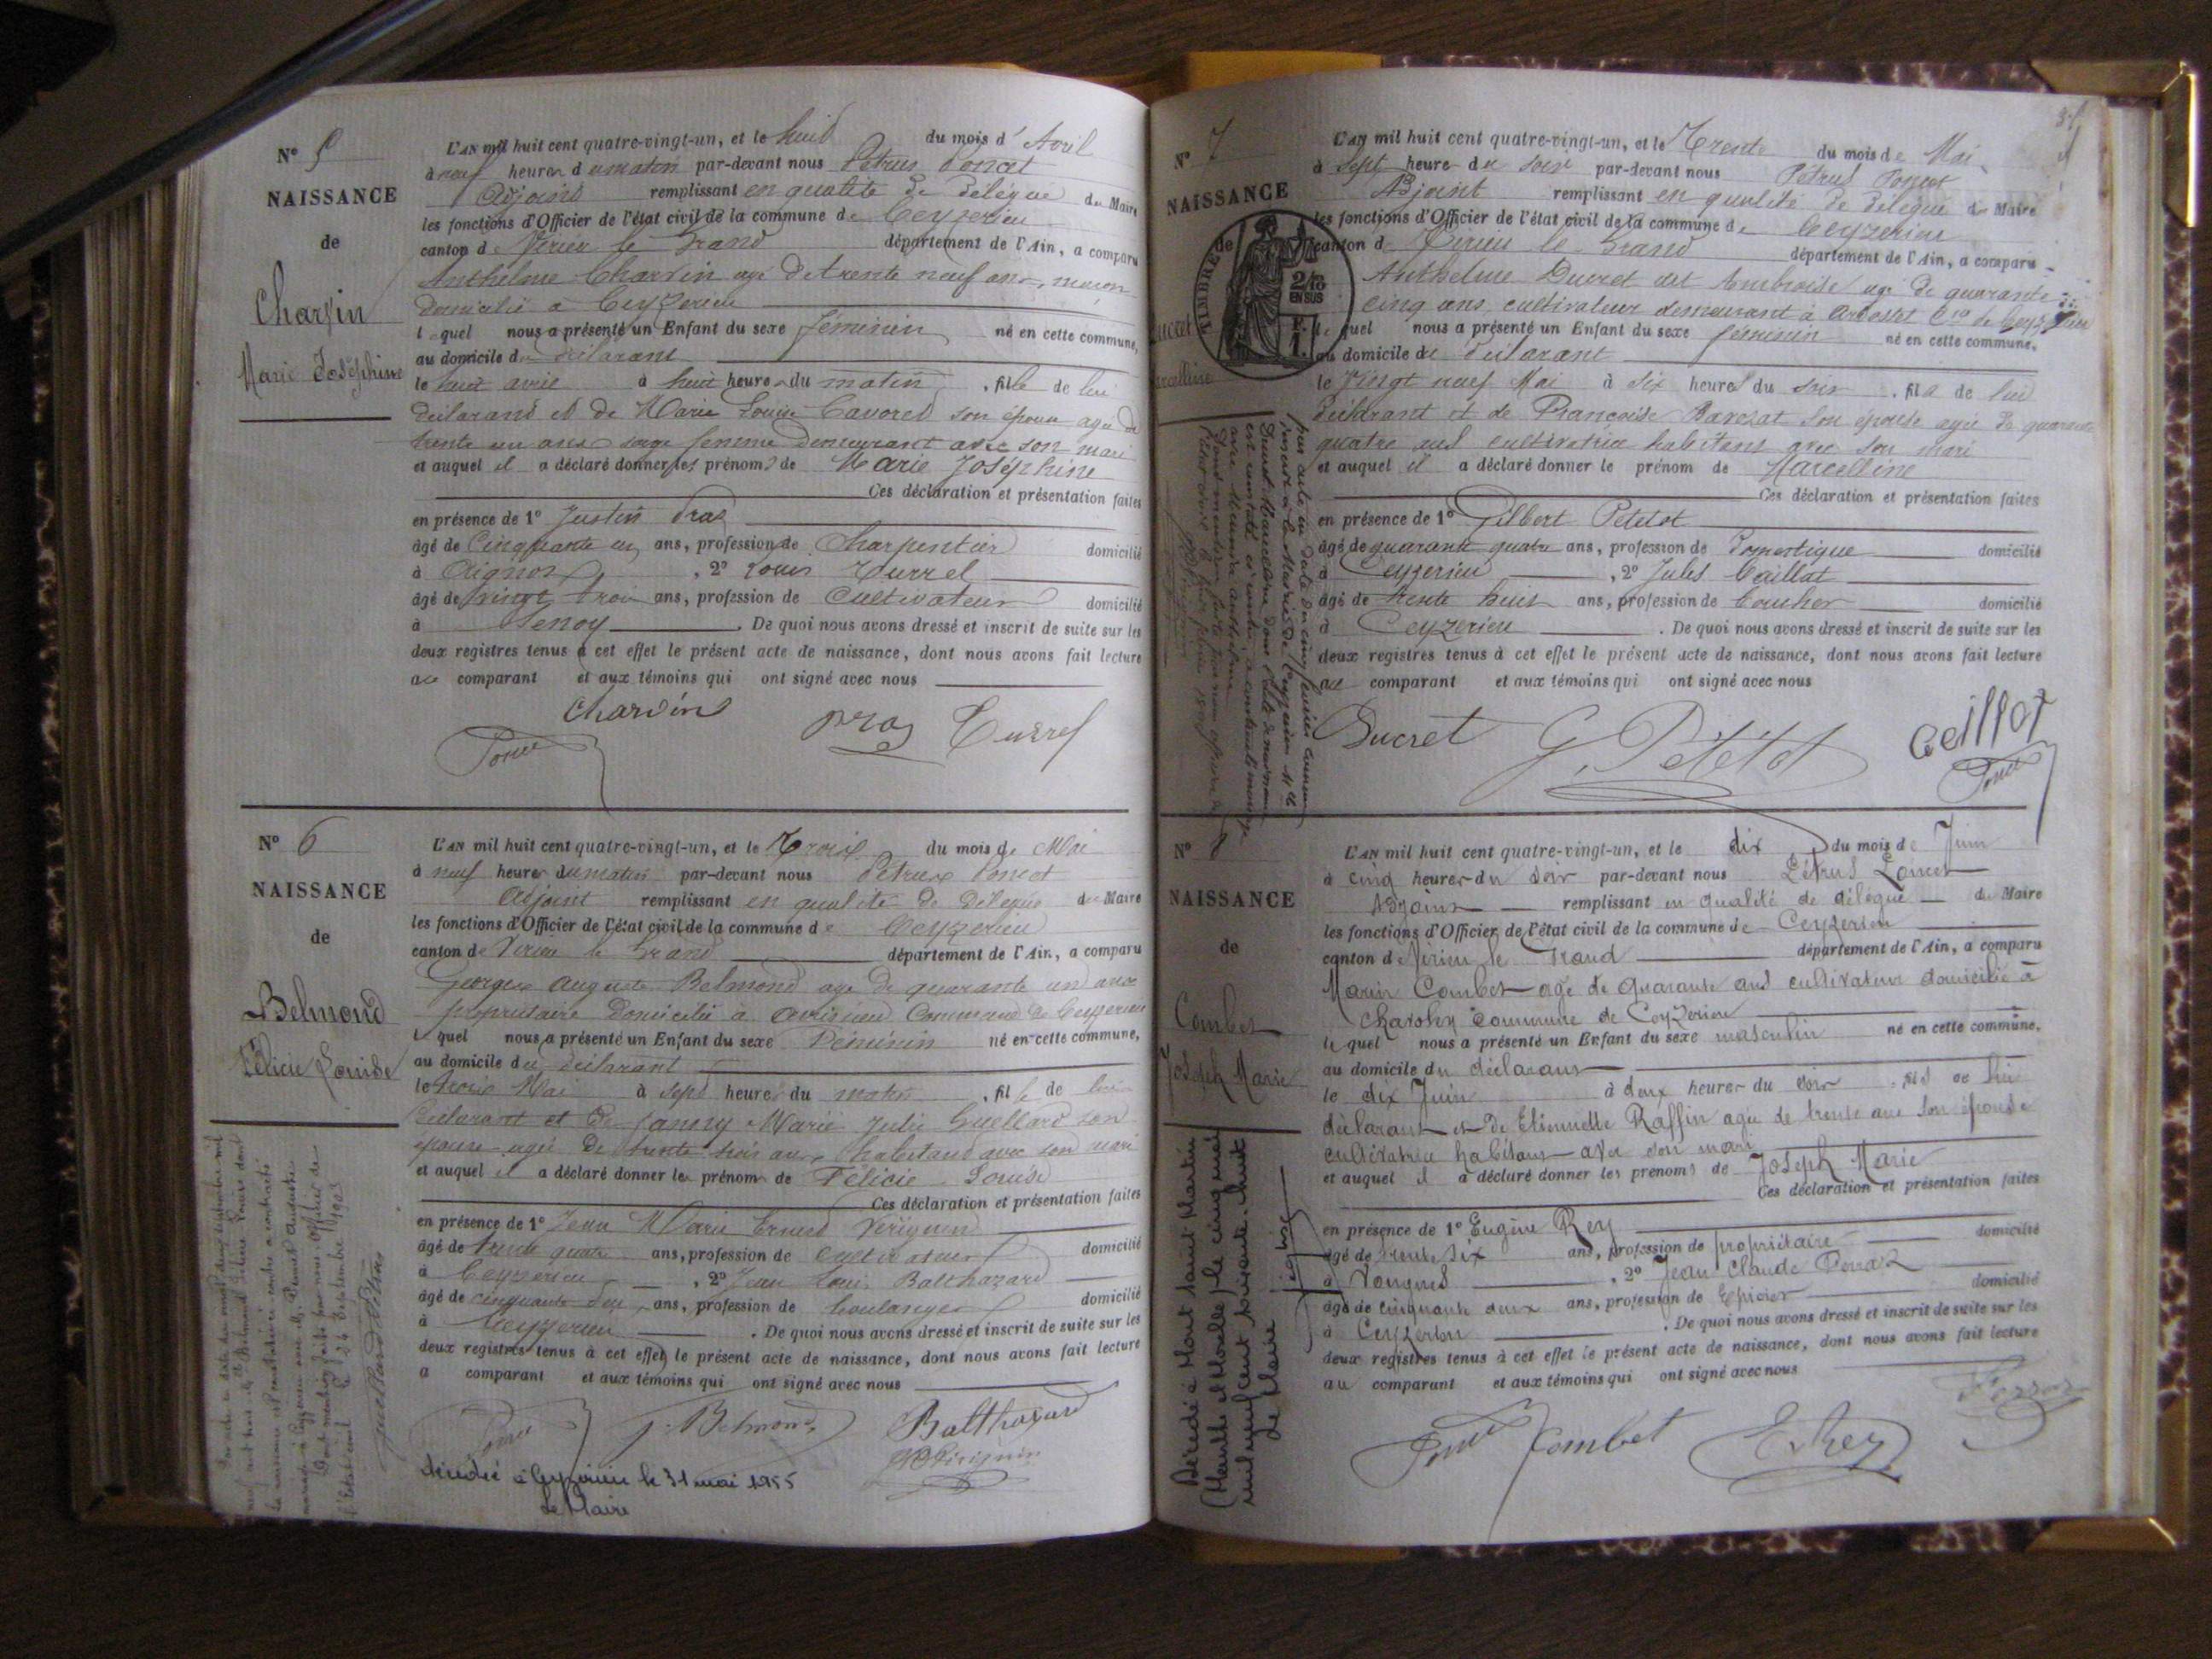 N° 5
NAISSANCE
de
Charvin
Marie Joséphine
L'AN mil huit cent quatre-vingt-un, et le huit du mois d'Avril
à neuf heures du matin par-devant nous Pétrus Poncet
Adjoint remplissant en qualité de délégué du Maire
les fonctions d'Officier de l'état civil de la commune de Ceyzerieu
canton de Virieu le Grand département de l'Ain, a comparu
Anthelme Charvin agé de trente neuf ans, maçon
domicilié à Ceyzerieu
lequel nous a présenté un Enfant du sexe féminin né en cette commune,
au domicile du déclarant
le huit avril à huit heures du matin, fille de lui
déclarant et de Marie Louise Cavoret son épouse agée de
trente un ans sage femme demeurant avec son mari
et auquel il a déclaré donner les prénoms de Marie Joséphine
Ces déclaration et présentation faites
en présence de 1° Justin Pras
âgé de Cinquante un ans, profession de Charpentier domicilié
à Aignoz, 2° Louis Turrel
âgé de vingt trois ans, profession de Cultivateur domicilié
à Senoy. De quoi nous avons dressé et inscrit de suite sur les
deux registres tenus à cet effet le présent acte de naissance, dont nous avons fait lecture
au comparant et aux témoins qui ont signé avec nous
Charvin Pras Turrel
Poncet
N° 6
NAISSANCE
de
Belmond
Félicie Louise
L'AN mil huit cent quatre-vingt-un, et le Trois du mois de Mai
à neuf heures du matin par-devant nous Pétrus Poncet
Adjoint remplissant en qualité de délégué du Maire
les fonctions d'Officier de l'état civil de la commune de Ceyzerieu
canton de Virieu le Grand département de l'Ain, a comparu
Georges Auguste Belmond agé de quarante un ans
propriétaire domicilié à Avrissieu Commune de Ceyzerieu
lequel nous a présenté un Enfant du sexe Féminin né en cette commune,
au domicile du déclarant
le trois Mai à sept heures du matin, fille de lui
déclarant et de Fanny Marie Julie Guellard son
épouse agée de trente trois ans habitand avec son mari
et auquel il a déclaré donner les prénoms de Félicie Louise
Ces déclaration et présentation faites
en présence de 1° Jean Marie Ernest
âgé de trente quatre ans, profession de Cultivateur domicilié
à Ceyzerieu, 2° Jean Louis Balthazard
âgé de cinquante deux ans, profession de boulanger domicilié
à Ceyzerieu. De quoi nous avons dressé et inscrit de suite sur les
deux registres tenus à cet effet le présent acte de naissance, dont nous avons fait lecture
a comparant et aux témoins qui ont signé avec nous
Poncet Belmond Balthazard
décédée à Ceyzerieu le 31 mai 1955
Le Maire
N° 7
NAISSANCE
de
TIMBRE
2/10
EN SUS
Ducret
Marcelline
L'AN mil huit cent quatre-vingt-un, et le Trente du mois de Mai
à sept heures du soir par-devant nous Pétrus Poncet
Adjoint remplissant en qualité de délégué du Maire
les fonctions d'Officier de l'état civil de la commune de Ceyzerieu
canton de Virieu le Grand département de l'Ain, a comparu
Anthelme Ducret dit Ambroise agé de quarante
cinq ans, cultivateur demeurant à Ardosset Cne de Ceyzerieu
lequel nous a présenté un Enfant du sexe féminin né en cette commune,
au domicile du déclarant
le Vingt neuf Mai à six heures du soir, fille de lui
déclarant et de Françoise son épouse agée de quarante
quatre ans cultivatrice habitant avec son mari
et auquel il a déclaré donner le prénom de Marcelline
Ces déclaration et présentation faites
en présence de 1° Gilbert Petetot
âgé de quarante quatre ans, profession de Domestique domicilié
à Ceyzerieu, 2° Jules Caillat
âgé de trente huit ans, profession de boucher domicilié
à Ceyzerieu. De quoi nous avons dressé et inscrit de suite sur les
deux registres tenus à cet effet le présent acte de naissance, dont nous avons fait lecture
au comparant et aux témoins qui ont signé avec nous
Ducret G. Petetot
Poncet
N° 8
NAISSANCE
de
Combet
Joseph Marie
L'AN mil huit cent quatre-vingt-un, et le dix du mois de Juin
à cinq heures du soir par-devant nous Pétrus Poncet
Adjoint remplissant en qualité de délégué du Maire
les fonctions d'Officier de l'état civil de la commune de Ceyzerieu
canton de Virieu le Grand département de l'Ain, a comparu
Marin Combet agé de quarante ans cultivateur domicilié à
commune de Ceyzerieu
lequel nous a présenté un Enfant du sexe masculin né en cette commune,
au domicile du déclarant
le dix Juin à deux heures du soir, fils de lui
déclarant et de Etiennette Raffin agée de trente ans son épouse
cultivatrice habitant avec son mari
et auquel il a déclaré donner les prénoms de Joseph Marie
Ces déclaration et présentation faites
en présence de 1° Eugène Rey domicilié
âgé de trente six ans, profession de propriétaire
à Vongnes, 2° Jean Claude
âgé de cinquante deux ans, profession de Epicier domicilié
à Ceyzerieu. De quoi nous avons dressé et inscrit de suite sur les
deux registres tenus à cet effet le présent acte de naissance, dont nous avons fait lecture
au comparant et aux témoins qui ont signé avec nous
Poncet Combet E. Rey
Décédé à Mont Saint Martin
(Meurthe et Moselle) le cinq mai
mil neuf cent soixante-huit
Le Maire